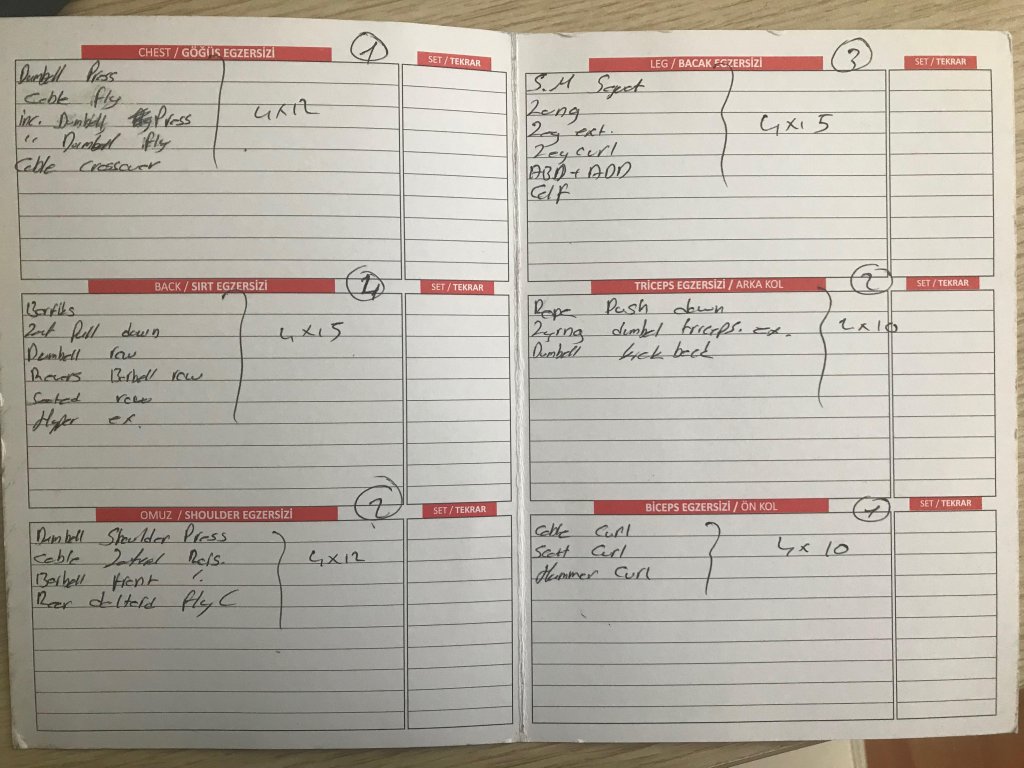 CHEST / GÖĞÜS EGZERSİZİ
1
SET / TEKRAR
Dumbell Press
Cable fly
inc. Dumbell Press
" Dumbell fly
Cable crossover
4x12
BACK / SIRT EGZERSİZİ
SET / TEKRAR
Barfiks
Lat Pull down
Dumbell row
Revers Barbell row
Seated row
Hyper ex.
4x15
OMUZ / SHOULDER EGZERSİZİ
2
SET / TEKRAR
Dumbell Shoulder Press
Cable Lateral Rais.
Barbell front "
Rear deltoid fly C
4x12
LEG / BACAK EGZERSİZİ
3
SET / TEKRAR
S.M Squat
Lung
Leg ext.
Leg curl
ABD + ADD
Calf
4x15
TRİCEPS EGZERSİZİ / ARKA KOL
2
SET / TEKRAR
Rope Push down
Lying dumbel triceps. ex.
Dumbell kick back
4x10
BİCEPS EGZERSİZİ / ÖN KOL
SET / TEKRAR
Cable Curl
Scott Curl
Hammer Curl
4x10